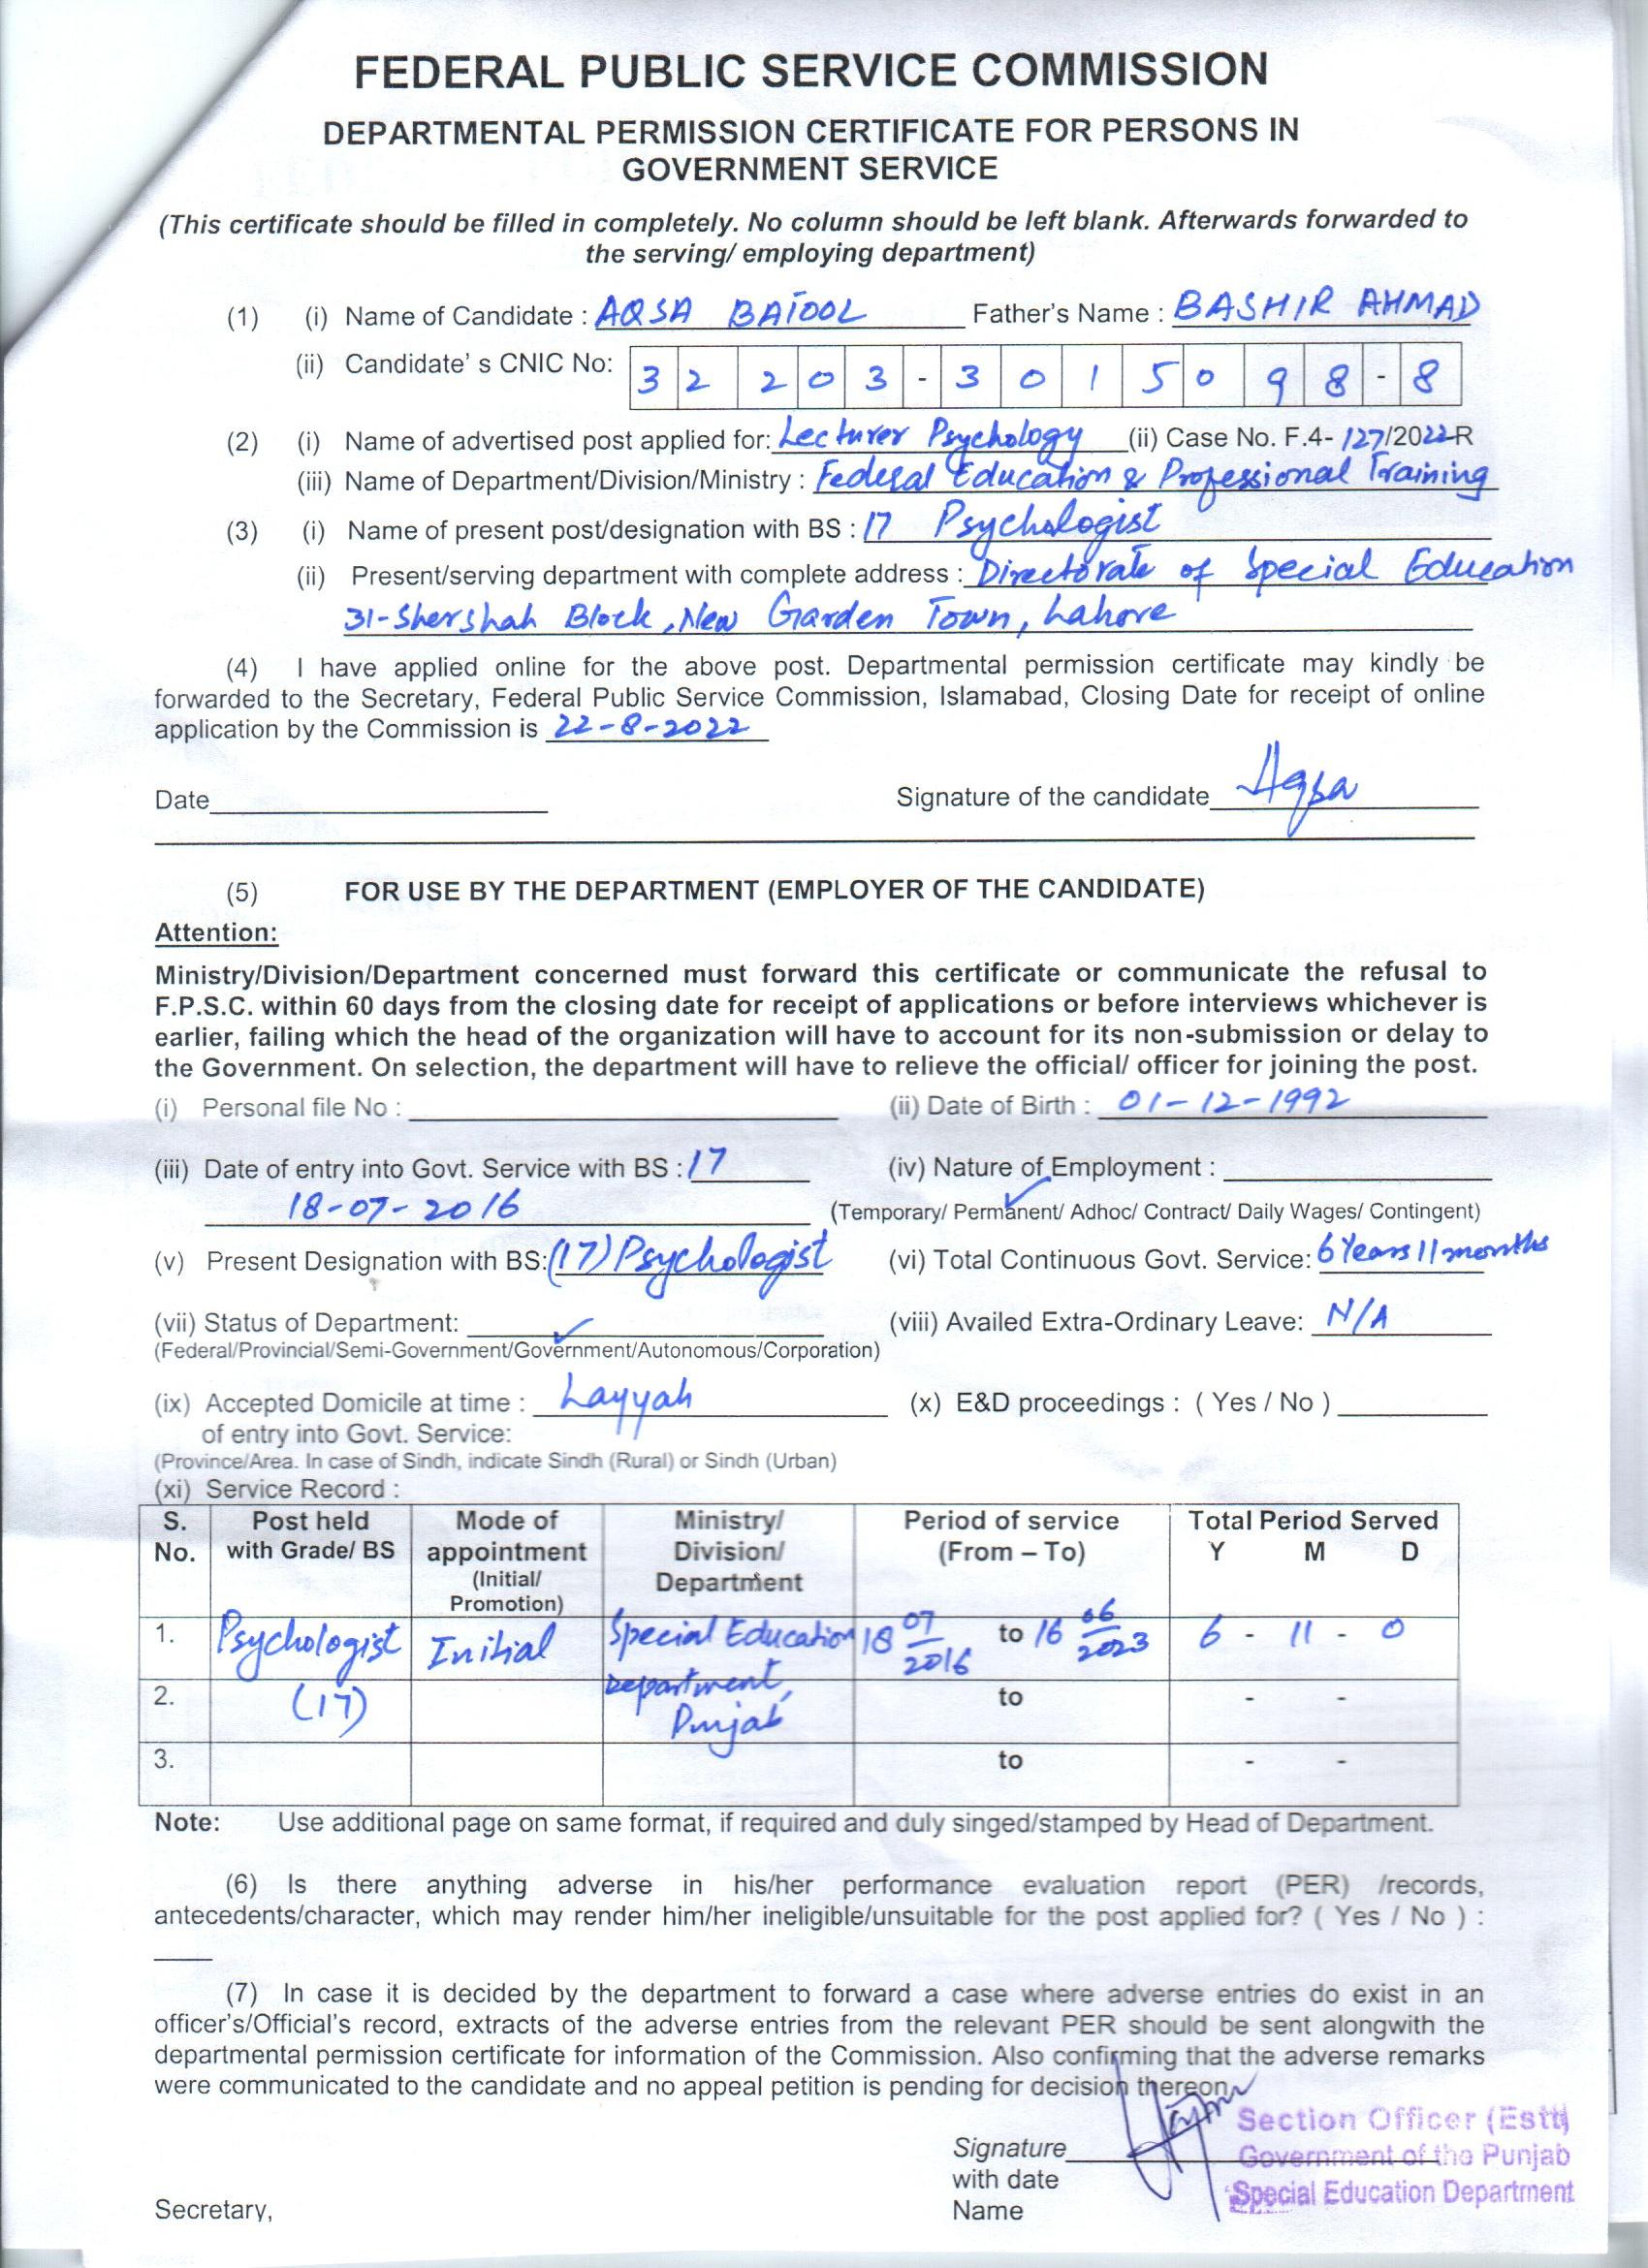 FEDERAL PUBLIC SERVICE COMMISSION
DEPARTMENTAL PERMISSION CERTIFICATE FOR PERSONS IN
GOVERNMENT SERVICE
(This certificate should be filled in completely. No column should be left blank. Afterwards forwarded to
the serving/ employing department)
(1) (i) Name of Candidate : AQSA BATOOL Father's Name : BASHIR AHMAD
(ii) Candidate' s CNIC No: 3 2 2 0 3 - 3 0 1 5 0 9 8 - 8
(2) (i) Name of advertised post applied for: Lecturer Psychology (ii) Case No. F.4- 127/2022-R
(iii) Name of Department/Division/Ministry : Federal Education & Professional Training
(3) (i) Name of present post/designation with BS : 17 Psychologist
(ii) Present/serving department with complete address : Directorate of Special Education
31-Shershah Block, New Garden Town, Lahore
(4) I have applied online for the above post. Departmental permission certificate may kindly be
forwarded to the Secretary, Federal Public Service Commission, Islamabad, Closing Date for receipt of online
application by the Commission is 22-8-2022
Date Signature of the candidate Aqsa
(5) FOR USE BY THE DEPARTMENT (EMPLOYER OF THE CANDIDATE)
Attention:
Ministry/Division/Department concerned must forward this certificate or communicate the refusal to
F.P.S.C. within 60 days from the closing date for receipt of applications or before interviews whichever is
earlier, failing which the head of the organization will have to account for its non-submission or delay to
the Government. On selection, the department will have to relieve the official/ officer for joining the post.
(i) Personal file No : (ii) Date of Birth : 01-12-1992
(iii) Date of entry into Govt. Service with BS : 17 (iv) Nature of Employment :
18-07-2016 (Temporary/ Permanent/ Adhoc/ Contract/ Daily Wages/ Contingent)
(v) Present Designation with BS: (17) Psychologist (vi) Total Continuous Govt. Service: 6 Years 11 months
(vii) Status of Department: (viii) Availed Extra-Ordinary Leave: N/A
(Federal/Provincial/Semi-Government/Government/Autonomous/Corporation)
(ix) Accepted Domicile at time : Layyah (x) E&D proceedings : ( Yes / No )
of entry into Govt. Service:
(Province/Area. In case of Sindh, indicate Sindh (Rural) or Sindh (Urban)
(xi) Service Record :
S. No. Post held with Grade/ BS Mode of appointment (Initial/ Promotion) Ministry/ Division/ Department Period of service (From – To) Total Period Served Y M D
1. Psychologist (17) Initial Special Education Department, Punjab 18 07/2016 to 16 06/2023 6 - 11 - 0
2. to - -
3. to - -
Note: Use additional page on same format, if required and duly singed/stamped by Head of Department.
(6) Is there anything adverse in his/her performance evaluation report (PER) /records,
antecedents/character, which may render him/her ineligible/unsuitable for the post applied for? ( Yes / No ) :
(7) In case it is decided by the department to forward a case where adverse entries do exist in an
officer's/Official's record, extracts of the adverse entries from the relevant PER should be sent alongwith the
departmental permission certificate for information of the Commission. Also confirming that the adverse remarks
were communicated to the candidate and no appeal petition is pending for decision thereon.
Signature
with date
Name
Section Officer (Estt)
Government of the Punjab
Special Education Department
Secretary,